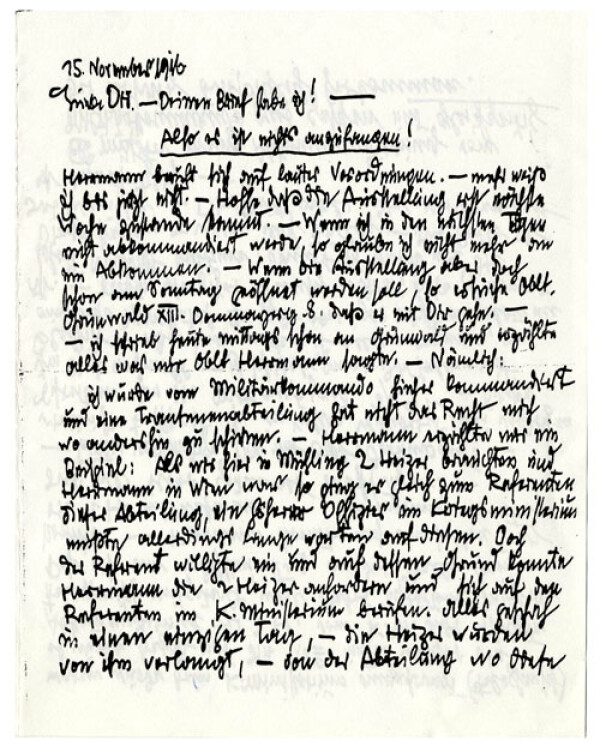 15. November 1916
Liebe Dir. — Deinen Brief habe ich! —
Also es ist nichts anzufangen!
Herrmann beruft sich auf lauter Verordnungen. — mehr weiß
ich bis jetzt nicht. — Hoffe daß die Ausstellung erst nächste
Woche zustande kommt. — Wenn ich in den nächsten Tagen
nicht abkommandiert werde, so glaube ich nicht mehr an
ein Abkommen. — Wenn die Ausstellung aber doch
schon am Sonntag eröffnet werden soll, so ersuche Oblt.
Grünwald XIII. 8. daß er mit Dir gehe. —
— ich schrieb heute mittags schon an Grünwald und erzählte
alles was mir Oblt Herrmann sagte. — Nämlich:
ich wurde vom Militärkommando hieher kommandiert
und eine Trainmenabteilung hat nicht das Recht mich
wo andershin zu schicken. — Herrmann erzählte mir ein
Beispiel: Als wir hier in Mühling 2 Heizer brauchten und
Herrmann in Wien war, so ging er gleich zum Referenten
dieser Abteilung, ein höherer Offizier im Kriegsministerium
mußte allerdings lange warten auf diesen. Doch
der Referent willigte ein und auf dessen Grund konnte
Herrmann die 2 Heizer anfordern und sich auf den
Referenten im K.Ministerium berufen. alles geschah
in einem einzigen Tag, — die Heizer wurden
von ihm verlangt, — von der Abteilung wo diese